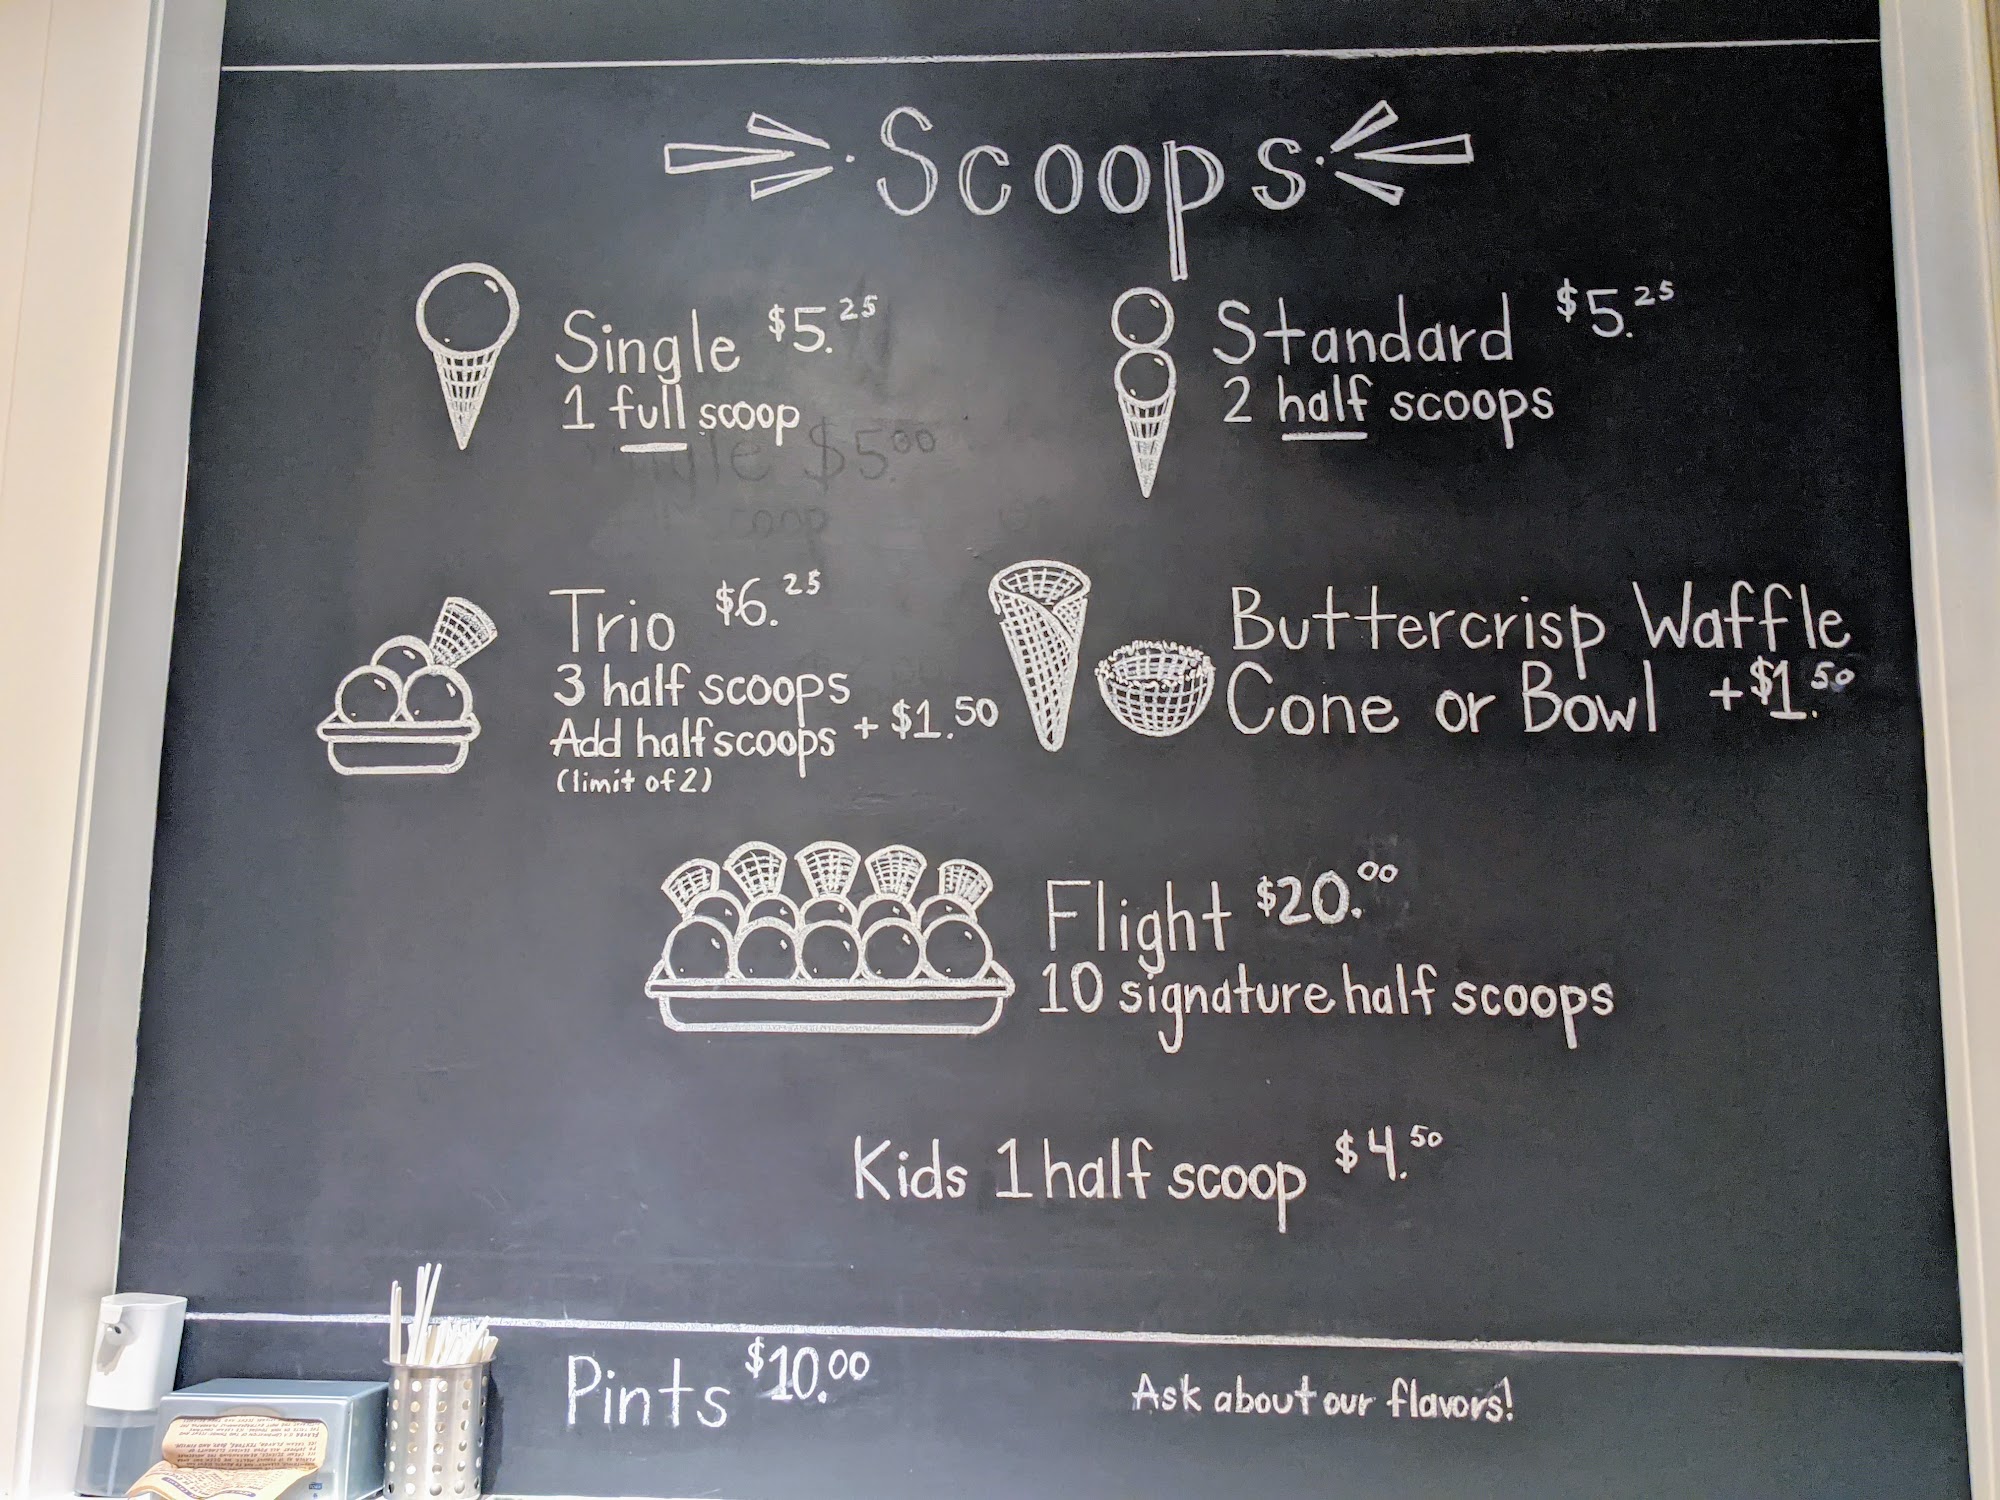 Scoops
Single $5.25
1 full scoop
Standard $5.25
2 half scoops
Trio $6.25
3 half scoops
Add half scoops + $1.50
(limit of 2)
Buttercrisp Waffle
Cone or Bowl + $1.50
Flight $20.00
10 signature half scoops
Kids 1 half scoop $4.50
Pints $10.00
Ask about our flavors!